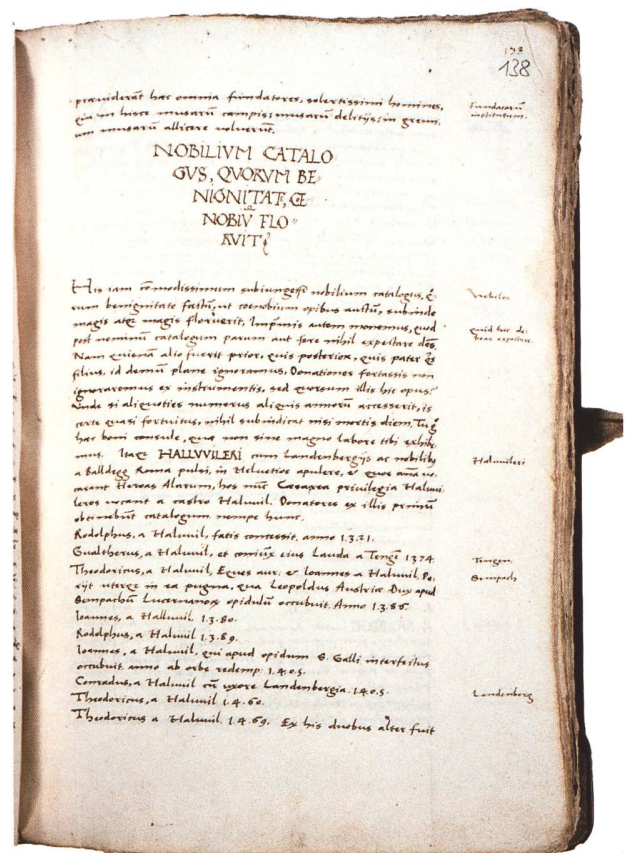 138
praeviderāt hac omnia fundatores, solertissimi homines,
qui in hisce musarū campis, musarū delitijs, in gremi
um musarū allicere voluerūt.
Fundatorū
institutum.
NOBILIVM CATALO
GVS, QVORVM BE
NIGNITATE, CE
NOBIV FLO
RVIT
His iam cōmodissimum subiungessē nobilium catalogus, q̄
rum benignitate factū, ut coenobium opibus auctū, subinde
magis atq magis floruerit, Imprimis autem monemus, quod
post nominū catalogum parum aut fere nihil expectare des
Nam quisnā alio fuerit prior, quis posterior, quis pater
filius, id demū plane ignoramus. Donationes fortassis non
ignoraremus ex instrumentis, sed quorsum illis hic opus?
Unde si aliquoties numerus aliquis annorū accesserit, is
certe quasi fortuitus, nihil subindicat nisi mortis diem, Tu
hac boni consule, qua non sine magno labore tibi exhibe
mus. Itaq HALLVVILERI cum Landenbergijs ac nobilib
a Balldegg Roma pulsi, in Helvetios apulere, et quos
carunt Heroas Alarum, hos Caesarea privilegia Halwi
leros vocant a castro Halwil. Donatores ex illis primū
obtinebūt catalogum nempe hunc.
Rodolphus, a Halwil, fatis concessit, anno 1.3.21.
Gualtherus, a Halwil, et coniūx eius Lauda a Tengē 1374
Theodoricus, a Halwil, Eques aur. et Ioannes a Halwil, Pe
rijt uterq in ea pugna, qua Leopoldus Austriae Dux apud
Sempachū Lucernanor opidulū occubuit. Anno 1.3.86.
Ioannes, a Halluuil. 1.3.80.
Rodolphus, a Halwil 1.3.89.
Ioannes, a Halwil, qui apud opidum S. Galli interfectus
occubuit anno ab orbe redemp: 1.4.05.
Conradus, a Halwil cū uxore Landenbergia. 1.4.0.5.
Theodoricus, a Halwil 1.4.60.
Theodoricus a Halwil. 1.4.69. Ex his duobus alter fuit
Nobiles
quid hic de
beas expectare.
Halwileri
Tengen.
Sempach
Landenberg